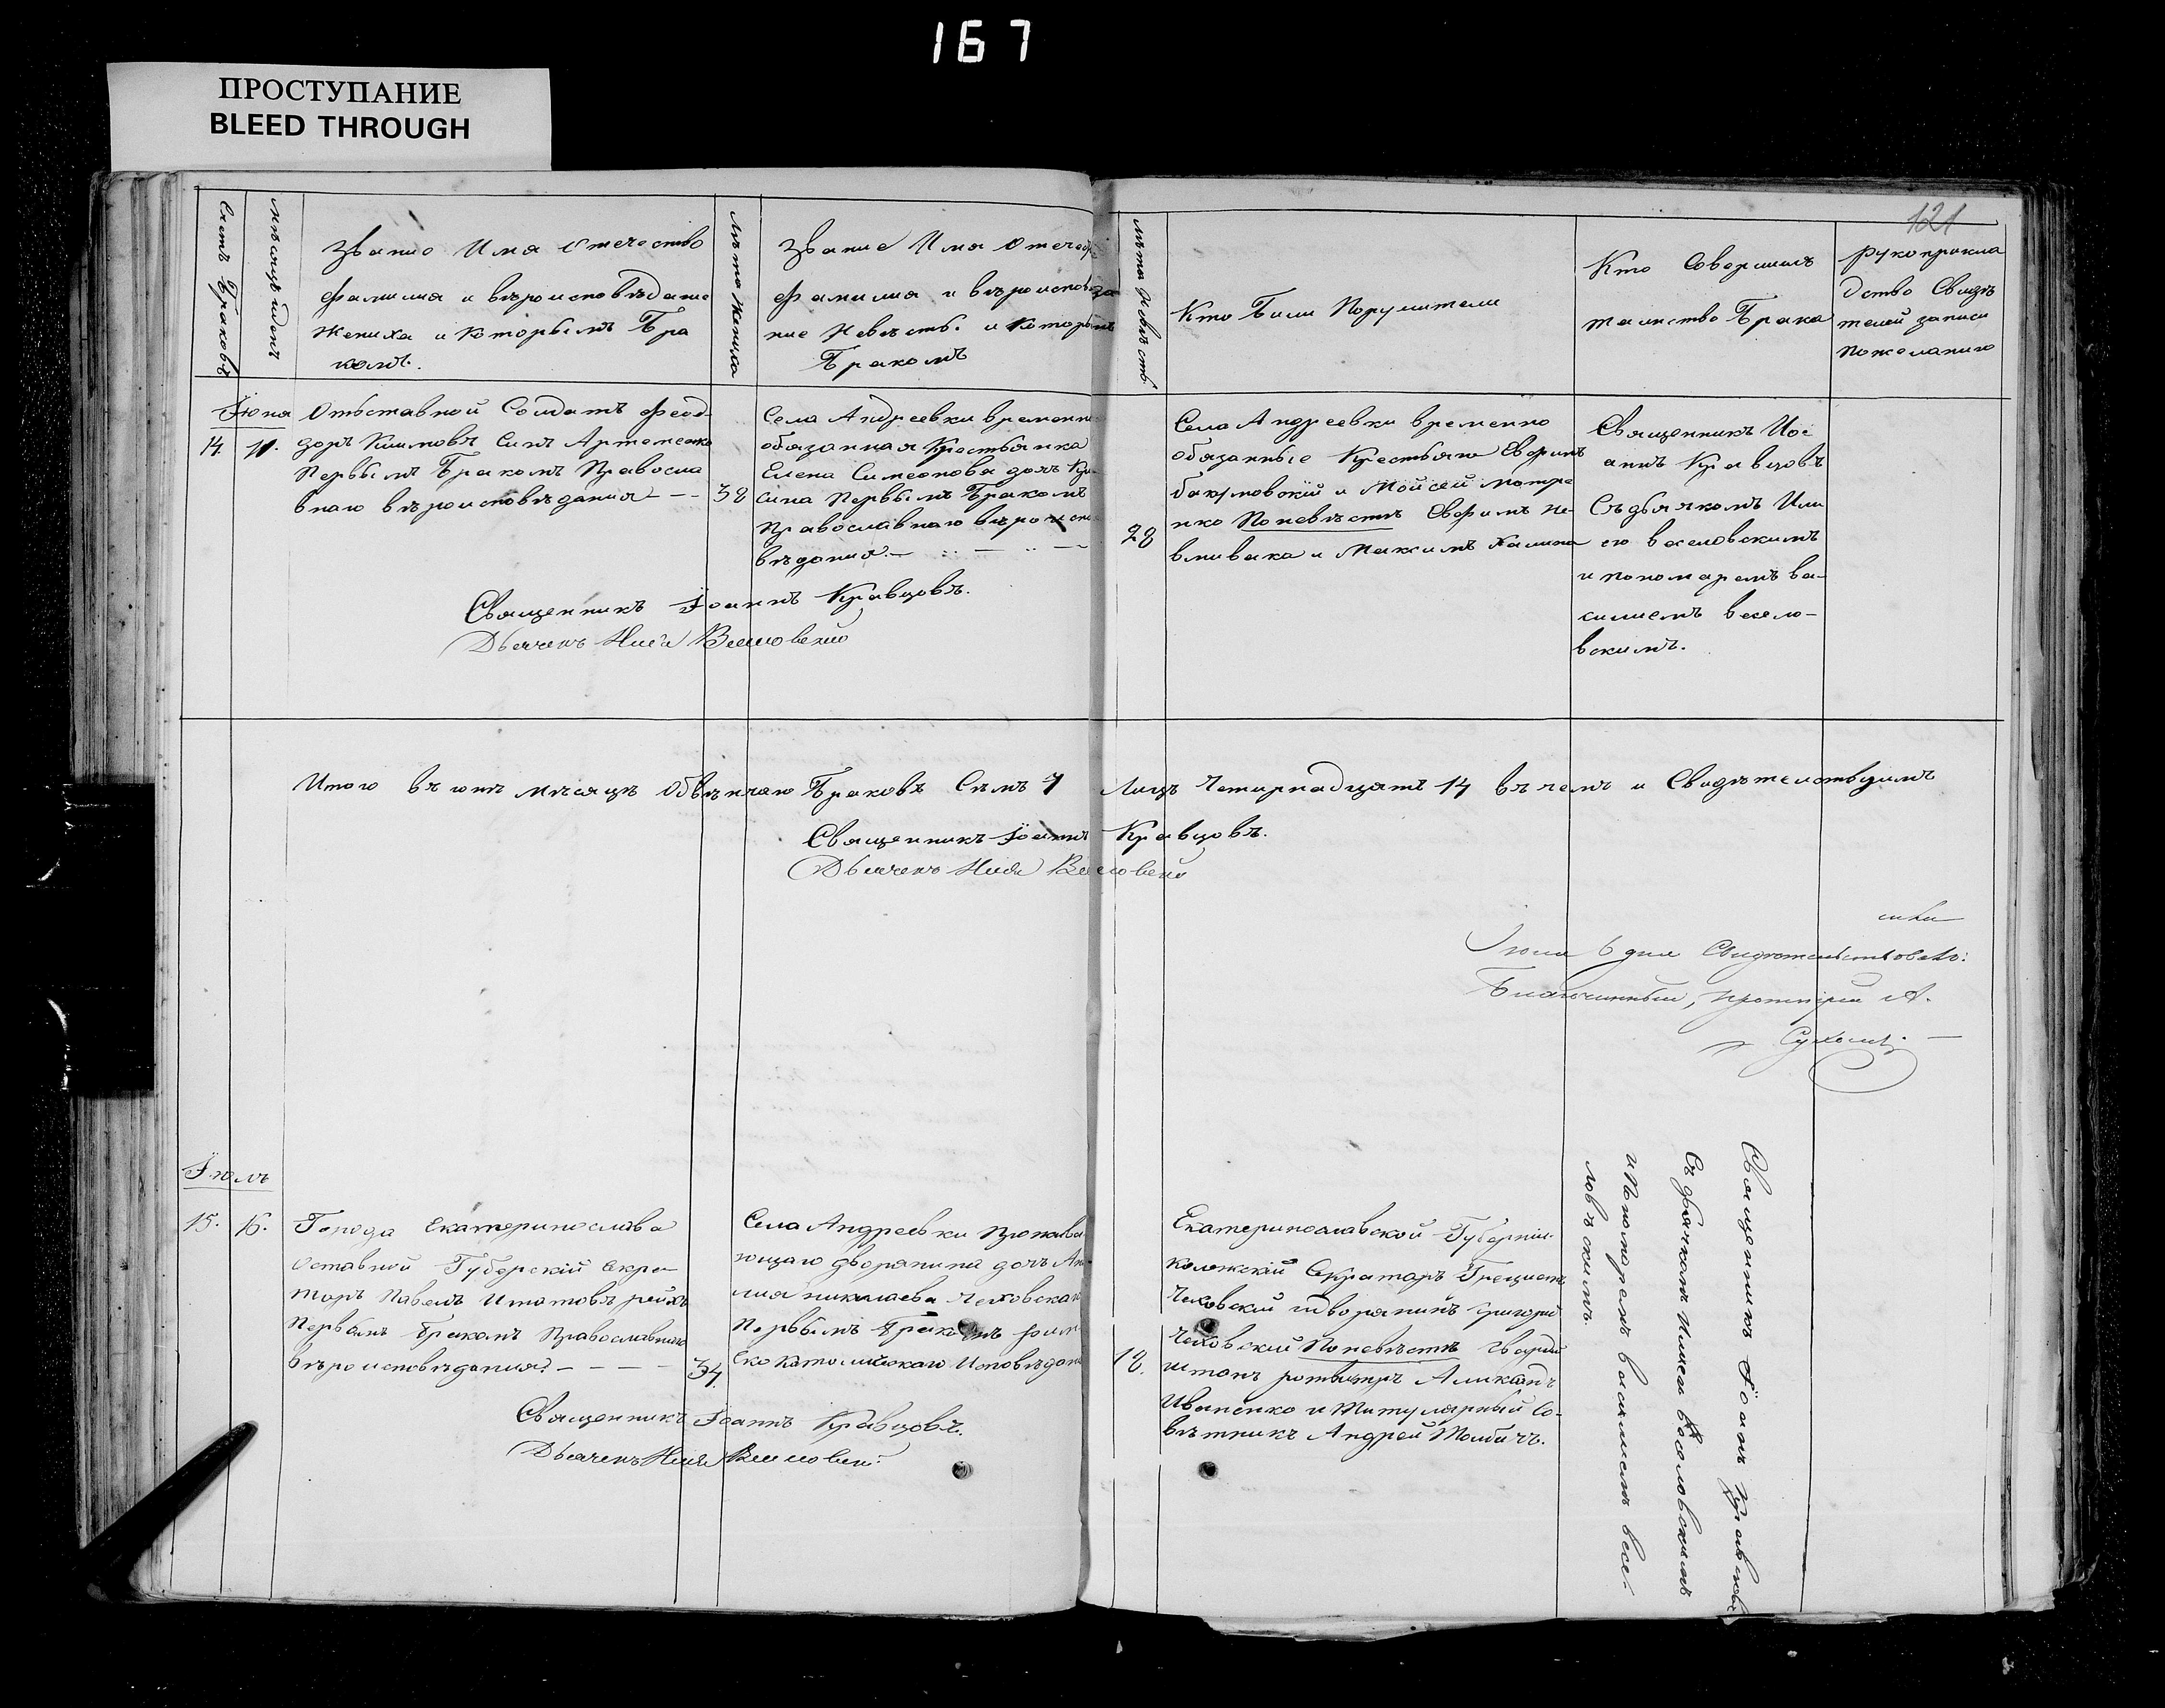 167
ПРОСТУПАНИЕ
BLEED THROUGH
121
Счетъ Браковъ
Мѣсяцъ и день
Званіе Имя Отечество
фамилія и вѣроисповѣданіе
Жениха и Которымъ Бра
комъ.
Лѣта Жениха
Званіе Имя Отечес
фамилия и вѣроисповѣда
ние Невѣсты и Которымъ
Бракомъ
Лѣта Невѣсты
Кто Были Поручители
Кто Совершилъ
таинство Брака
Рукоприкла
дство Свидѣ
телей записи
Пожеланию
Іюня
14.
11.
Отъставной Солдатъ Феод-
доръ Климовъ Синъ Артеменко
Первымъ Бракомъ Православ
внаго вѣроисповѣдания
38
Села Андреевки временно
обязанная Крестьянка
Елена Симеонова дочь
сина Первымъ Бракомъ
Православнаго вѣроиспо
вѣдания.
28
Села Андреевки временно
обязанные Крестьяне Евфимъ
и Мойсей
нко Поневѣстѣ Евфимъ Не-
вливака и Максимъ Халина
Священникъ Иое
аннъ Кравцовъ
Съ дьячкомъ Или
ею Веселовскимъ
и пономаремъ Ва-
силиемъ Весело-
вскимъ.
Священникъ Іоаннъ Кравцовъ.
Дьячекъ Илія Веселовскій
Итого въ юнѣ мѣсяцѣ Обвѣнчано Браковъ Семъ 7 Лицъ Четирнадцять 14 въ чемъ и Свидѣтелствуимъ
Священникъ Іоаннъ Кравцовъ.
Дьячекъ Илія Веселовскій
Іюля 6 дня Свидѣтельствовалъ:
Благочинный, протоіерей А.
Іюль
15.
16.
Города Екатеринослава
Оставной Губерскій Секре-
таръ Павелъ Игнатовъ
Первымъ Бракомъ Православнаго
вѣроисповѣдания
34.
Села Андреевки Прожива
ющаго дворянина дочь
лия николаева Чеховская
Первымъ Бракомъ рим
ско Католическаго Исповѣдани
18.
Екатеринославской Губерніи
колежскій Секретаръ
Чеховскій и дворянинъ Григорій
Чеховскій Поневѣстѣ Гвардій
штапъ ротмистръ Александ
Иваненко и Титулярный Со-
вѣтникъ Андрей
Священникъ Іоанъ Кравцовъ
Съ дьячкомъ Илиею Веселовскимъ
и Пономаремъ Василиемъ Весе-
ловъскимъ.
Священникъ Іоаннъ Кравцовъ.
Дьячекъ Илія Веселовскій